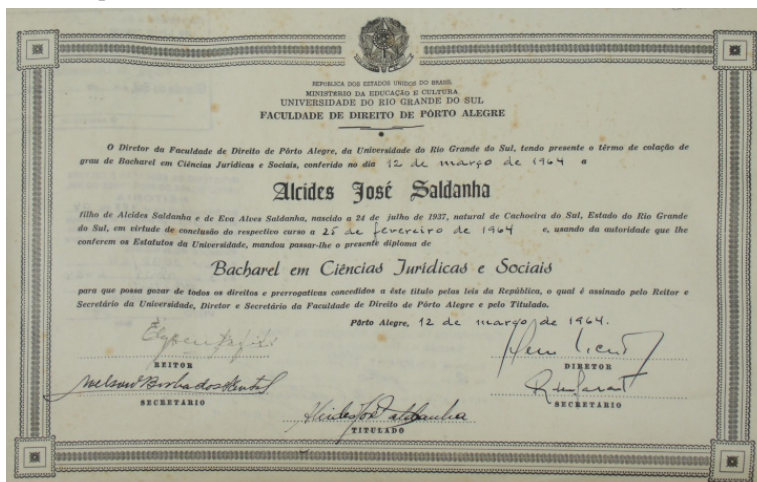 REPÚBLICA DOS ESTADOS UNIDOS DO BRASIL
MINISTÉRIO DA EDUCAÇÃO E CULTURA
UNIVERSIDADE DO RIO GRANDE DO SUL
FACULDADE DE DIREITO DE PÔRTO ALEGRE
O Diretor da Faculdade de Direito de Pôrto Alegre, da Universidade do Rio Grande do Sul, tendo presente o têrmo de colação de
grau de Bacharel em Ciências Jurídicas e Sociais, conferido no dia 12 de março de 1964 a
Alcides José Saldanha
filho de Alcides Saldanha e de Eva Alves Saldanha, nascido a 24 de julho de 1937, natural de Cachoeira do Sul, Estado do Rio Grande
do Sul, em virtude de conclusão do respectivo curso a 25 de fevereiro de 1964 e, usando da autoridade que lhe
conferem os Estatutos da Universidade, mandou passar-lhe o presente diploma de
Bacharel em Ciências Jurídicas e Sociais
para que possa gozar de todos os direitos e prerrogativas concedidos a êste título pelas leis da República, o qual é assinado pelo Reitor e
Secretário da Universidade, Diretor e Secretário da Faculdade de Direito de Pôrto Alegre e pelo Titulado.
Pôrto Alegre, 12 de março de 1964.
REITOR
DIRETOR
SECRETÁRIO
SECRETÁRIO
Alcides José Saldanha
TITULADO